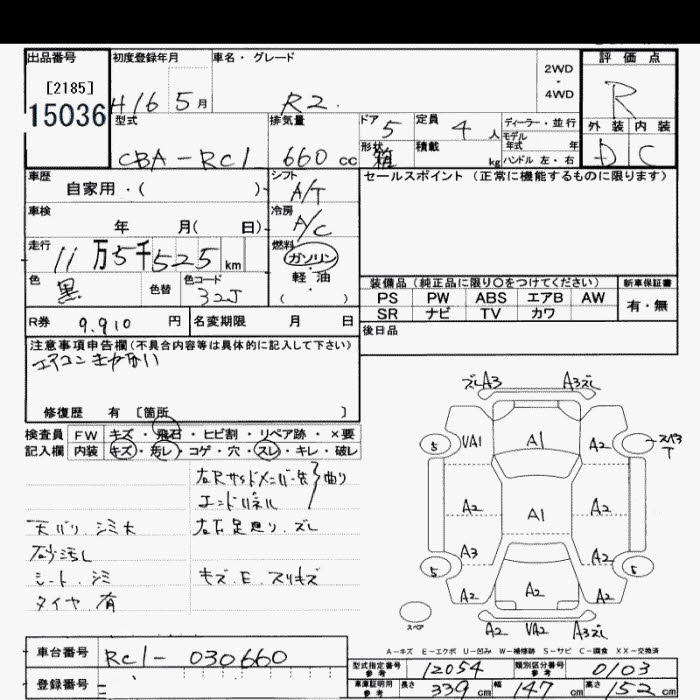 出品番号 初度登録年月 車名・グレード 評価点
[2185] 2WD
・
15036 H16 5月 R2. 4WD R
型式 排気量 ドア 定員 ディーラー・並行 外装 内装
5 4人 モデル
年式 年
CBA-RC1 660cc 形状 箱 積載 kg ハンドル 左・右 D C
車歴 シフト セールスポイント (正常に機能するものに限ります)
自家用・( ) A/T
車検 冷房
年 月( 日) A/C
走行 燃料
11万5千525km ガソリン
色 色替 色コード 軽・油 装備品(純正品に限り○をつけてください) 新車保証書
黒 32J ( ) PS PW ABS エアB AW 有・無
SR ナビ TV カワ
R券 9,910円 名変期限 月 日 後日品
注意事項申告欄(不具合内容等は具体的に記入して下さい)
エアコン きかない
修復歴 有 [箇所 ]
検査員 FW キズ・飛石・ヒビ割・リペア跡・×要
記入欄 内装 キズ・汚レ・コゲ・穴・スレ・キレ・破レ
右Rサイドメンバー先 曲り
エンドパネル
天バリ シミ大 右R足廻り ズレ
砂汚し
シート シミ キズ.E.スリキズ
タイヤ 有
ズレA3 A3ズレ
5 VA1 A1 A2 スペ3
A2 A1 A2
A3 A2
5 A2 A2 A2 5
スペア A2 VA2 A3ズレ
A-キズ E-エクボ U-凹み W-補修跡 S-サビ C-腐食 XX-交換済
車台番号 RC1-030660
型式指定番号 参考 12054 類別区分番号 参考 0103
登録番号
車庫証明用 参考 長さ 339cm 幅 147cm 高さ 152cm